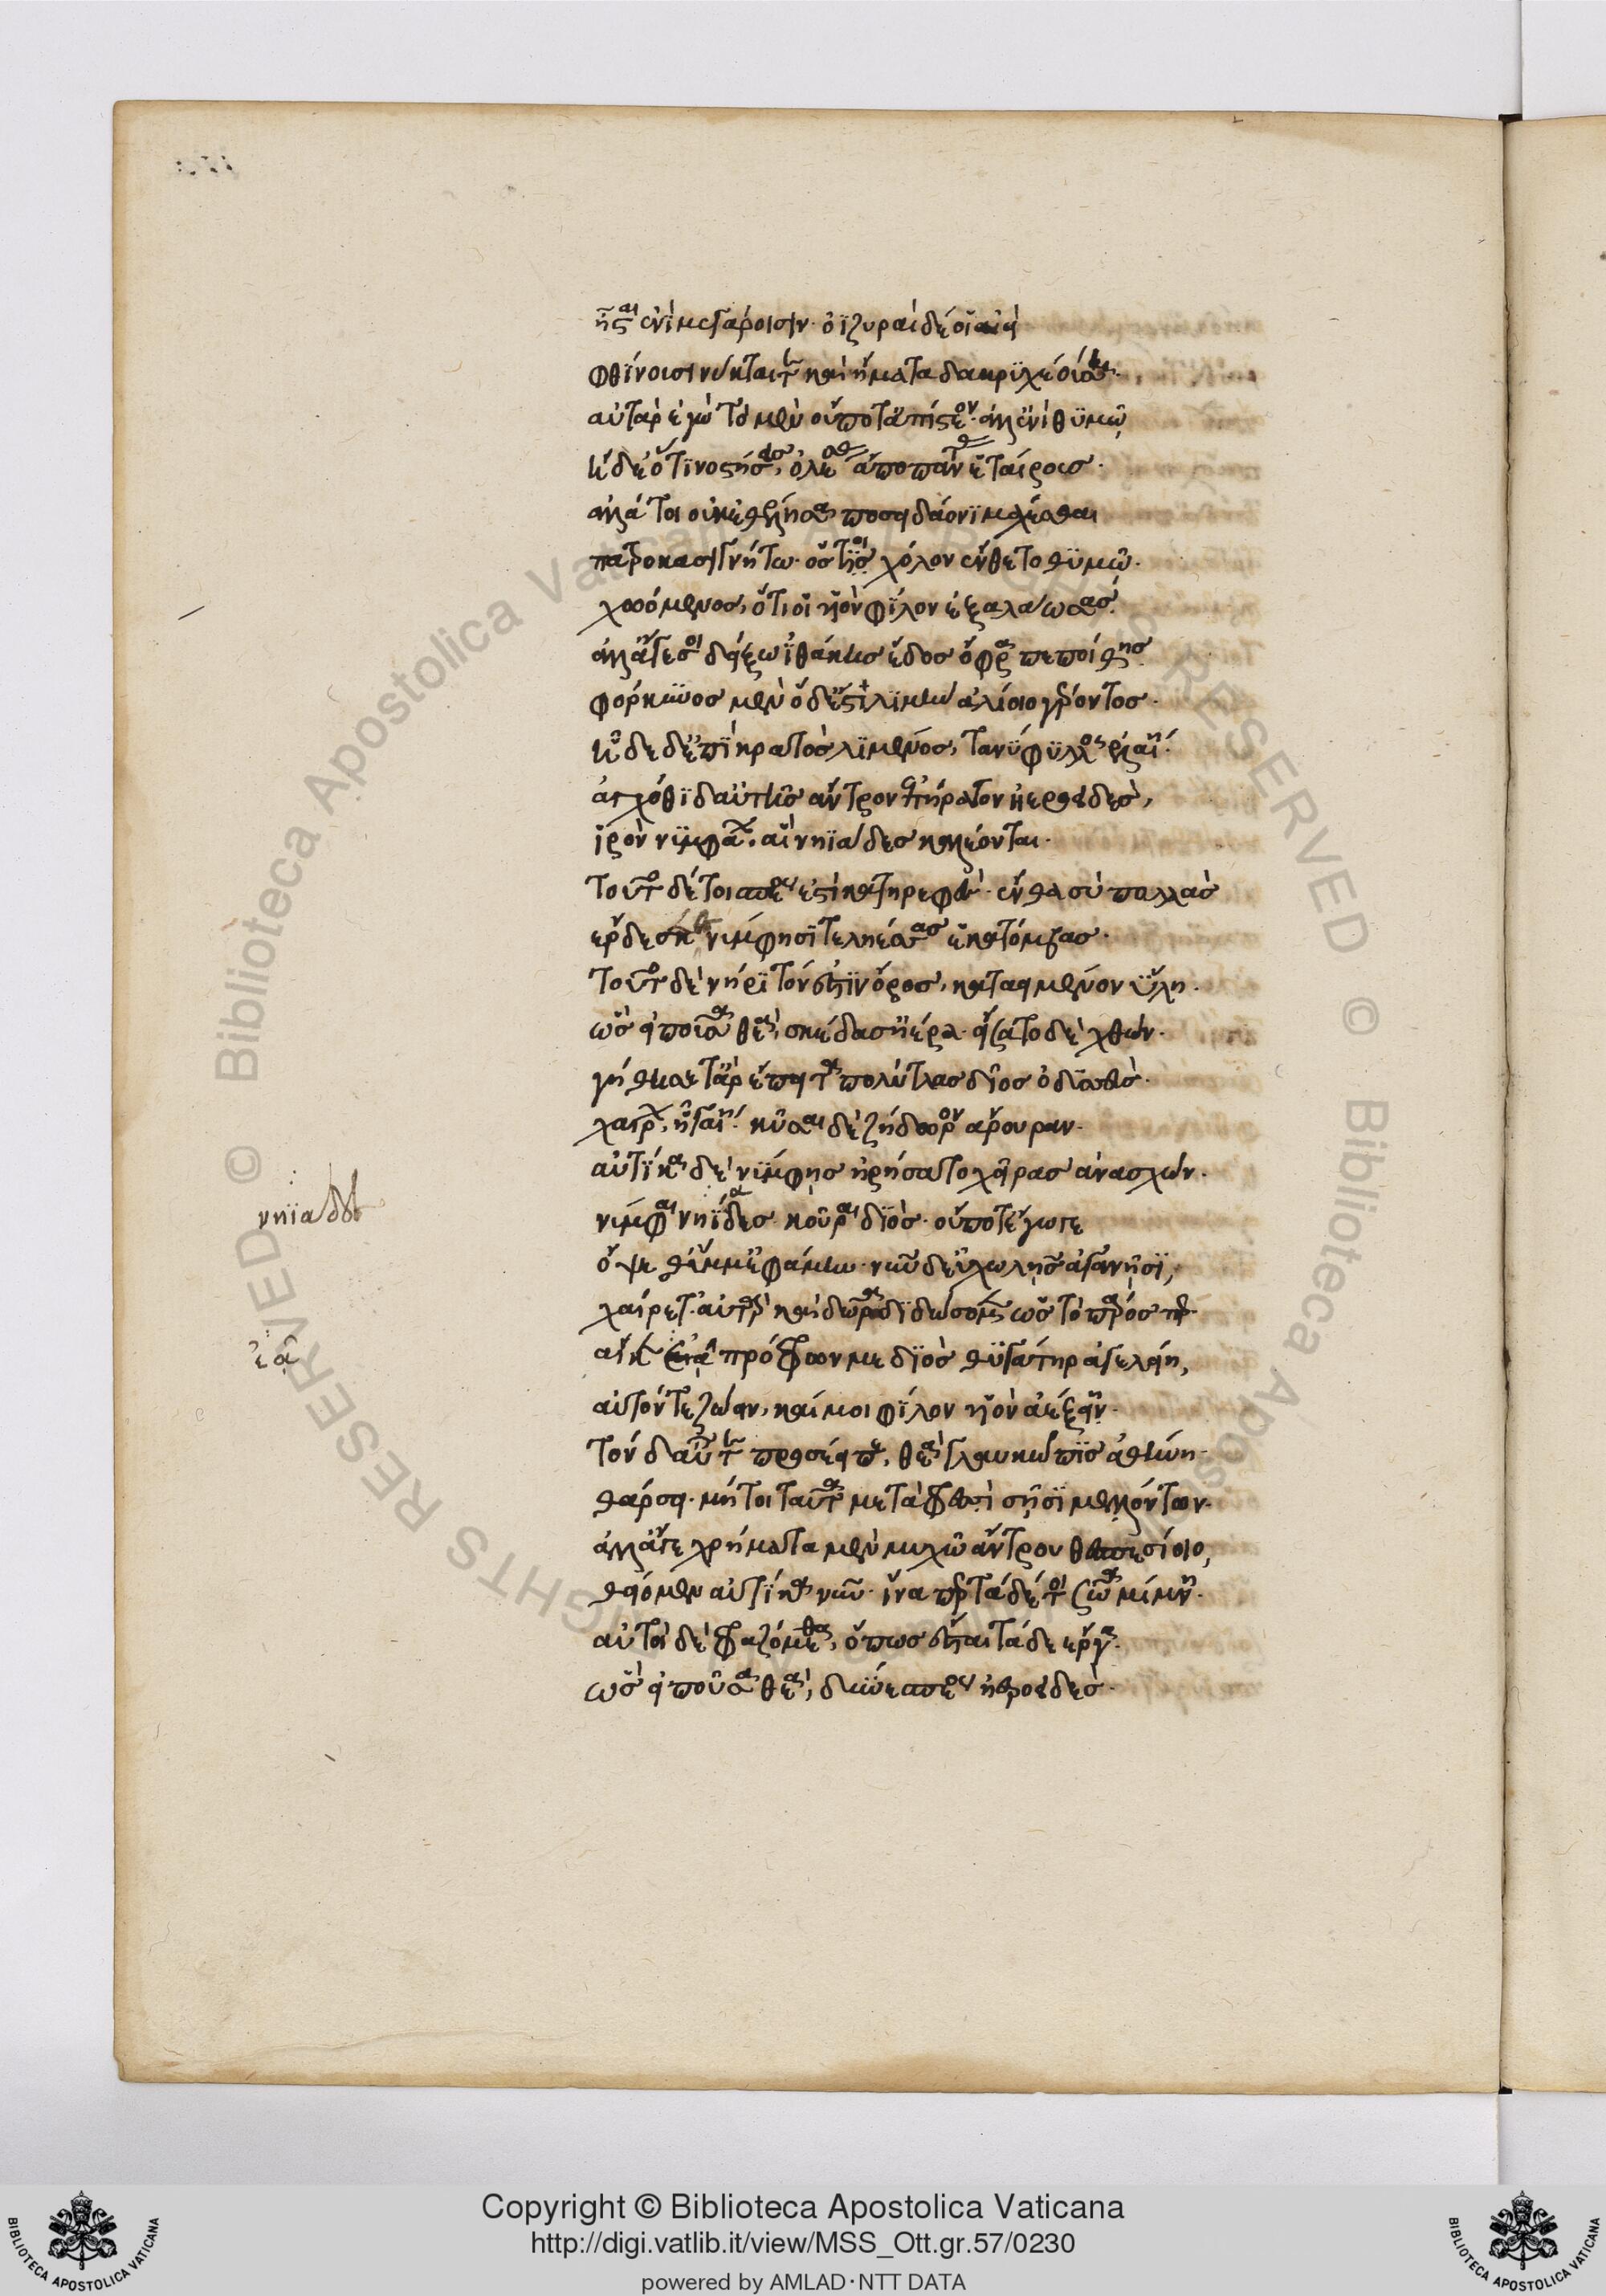 ἧσται ἐνὶ μεγάροισιν· ὀϊζυραὶ δέ οἱ αἰεὶ
φθίνουσιν νύκτες τὲ καὶ ἤματα δακρυχεούσῃ·
αὐτὰρ ἐγὼ τὸ μὲν οὔποτ' ἀπίστεον· ἀλλ' ἐνὶ θυμῷ
ᾔδε' ὅτι νοστήσεις, ὀλέσας ἄπο πάντας ἑταίρους·
ἀλλά τοι οὐκ ἐθέλησα ποσειδάωνι μάχεσθαι
πατροκασιγνήτῳ· ὅς τοι χόλον ἔνθετο θυμῷ·
χωόμενος, ὅτι οἱ υἱὸν φίλον ἐξαλάωσας.
ἀλλ' ἄγε σοὶ δείξω ἰθάκης ἕδος ὄφρα πεποίθῃς.
φόρκυνος μὲν ὅδ' ἐστὶ λιμὴν ἁλίοιο γέροντος.
ἥδε δ' ἐπὶ κρατὸς λιμένος, τανύφυλλος ἐλαίη.
ἀγχόθι δ' αὐτῆς ἄντρον ἐπήρατον ἠεροειδές,
ἱρὸν νυμφάων, αἳ νηϊάδες καλέονται.
τοῦτο δέ τοι σπέος ἐστὶ κατηρεφές· ἔνθα σὺ πολλὰς
ἔρδεσκες νύμφῃσι τεληέσσας ἑκατόμβας·
τοῦτο δὲ νήριτόν ἐστιν ὄρος, καταειμένον ὕλῃ.
ὣς εἰποῦσα θεὰ, σκέδασ' ἠέρα· εἴσατο δὲ χθών.
γήθησέν τ' ἄρ' ἔπειτα πολύτλας δῖος ὀδυσσεύς·
χαίρων, ᾗ γαίῃ. κύσε δὲ ζείδωρον ἄρουραν·
αὐτίκα δὲ νύμφῃς ἠρήσατο χεῖρας ἀνασχών·
νύμφαι νηϊάδες κοῦραι διός· οὔποτ' ἔγωγε
νηϊάδες
ὄψεσθ' ὔμμ' ἐφάμην· νῦν δ' εὐχωλῇς ἀγανῇσι,
χαίρετ'· αὐτὰρ καὶ δῶρα διδώσομεν ὡς τὸ πάρος περ·
αἴ κεν ἐᾷ πρόφρων με διὸς θυγάτηρ ἀγελείη,
ἐᾷ
αὐτόν τε ζώειν, καί μοι φίλον υἱὸν ἀέξῃ.
τὸν δ' αὖτε προσέειπε, θεὰ γλαυκῶπις ἀθήνη·
θάρσει· μή τοι ταῦτα μετὰ φρεσὶ σῇσι μελόντων·
ἀλλ' ἄγε χρήματα μὲν μυχῷ ἄντρου θεσπεσίοιο,
θείομεν αὐτίκα νῦν· ἵνα περ τάδε τοι σῶα μίμνῃ·
αὐτοὶ δὲ φραζόμεθα, ὅπως ἔσται τάδε ἔργα·
ὣς εἰποῦσα θεὰ, δύνε σπέος ἠεροειδές·
Copyright © Biblioteca Apostolica Vaticana
http://digi.vatlib.it/view/MSS_Ott.gr.57/0230
powered by AMLAD·NTT DATA